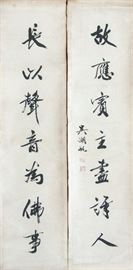 故應賓主盡詩人
長以聲音為佛事
吳湖帆